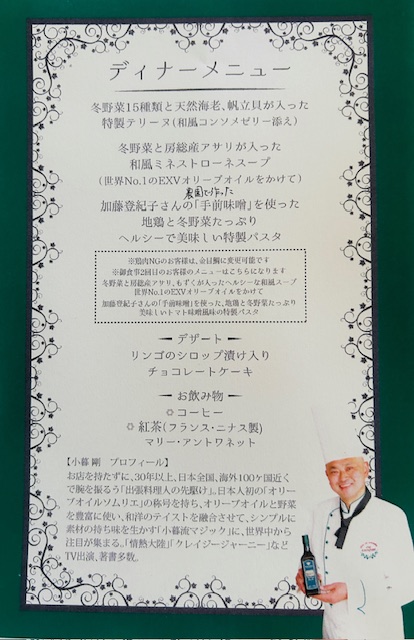 ディナーメニュー
冬野菜15種類と天然海老、帆立貝が入った
特製テリーヌ(和風コンソメゼリー添え)
冬野菜と房総産アサリが入った
和風ミネストローネスープ
(世界No.1のEXVオリーブオイルをかけて)
農園で作った
加藤登紀子さんの「手前味噌」を使った
地鶏と冬野菜たっぷり
ヘルシーで美味しい特製パスタ
※鶏肉NGのお客様は、金目鯛に変更可能です
※御食事2回目のお客様のメニューはこちらになります
冬野菜と房総産アサリ、もずくが入ったヘルシーな和風スープ
世界No.1のEXVオリーブオイルをかけて
加藤登紀子さんの「手前味噌」を使った、地鶏と冬野菜たっぷり
美味しいトマト味噌風味の特製パスタ
デザート
リンゴのシロップ漬け入り
チョコレートケーキ
お飲み物
コーヒー
紅茶(フランス・ニナス製)
マリー・アントワネット
【小暮 剛 プロフィール】
お店を持たずに、30年以上、日本全国、海外100ヶ国近く
で腕を振るう「出張料理人の先駆け」。日本人初の「オリー
ブオイルソムリエ」の称号を持ち、オリーブオイルと野菜
を豊富に使い、和洋のテイストを融合させて、シンプルに
素材の持ち味を生かす「小暮流マジック」に、世界中から
注目が集まる。「情熱大陸」「クレイジージャーニー」など
TV出演、著書多数。